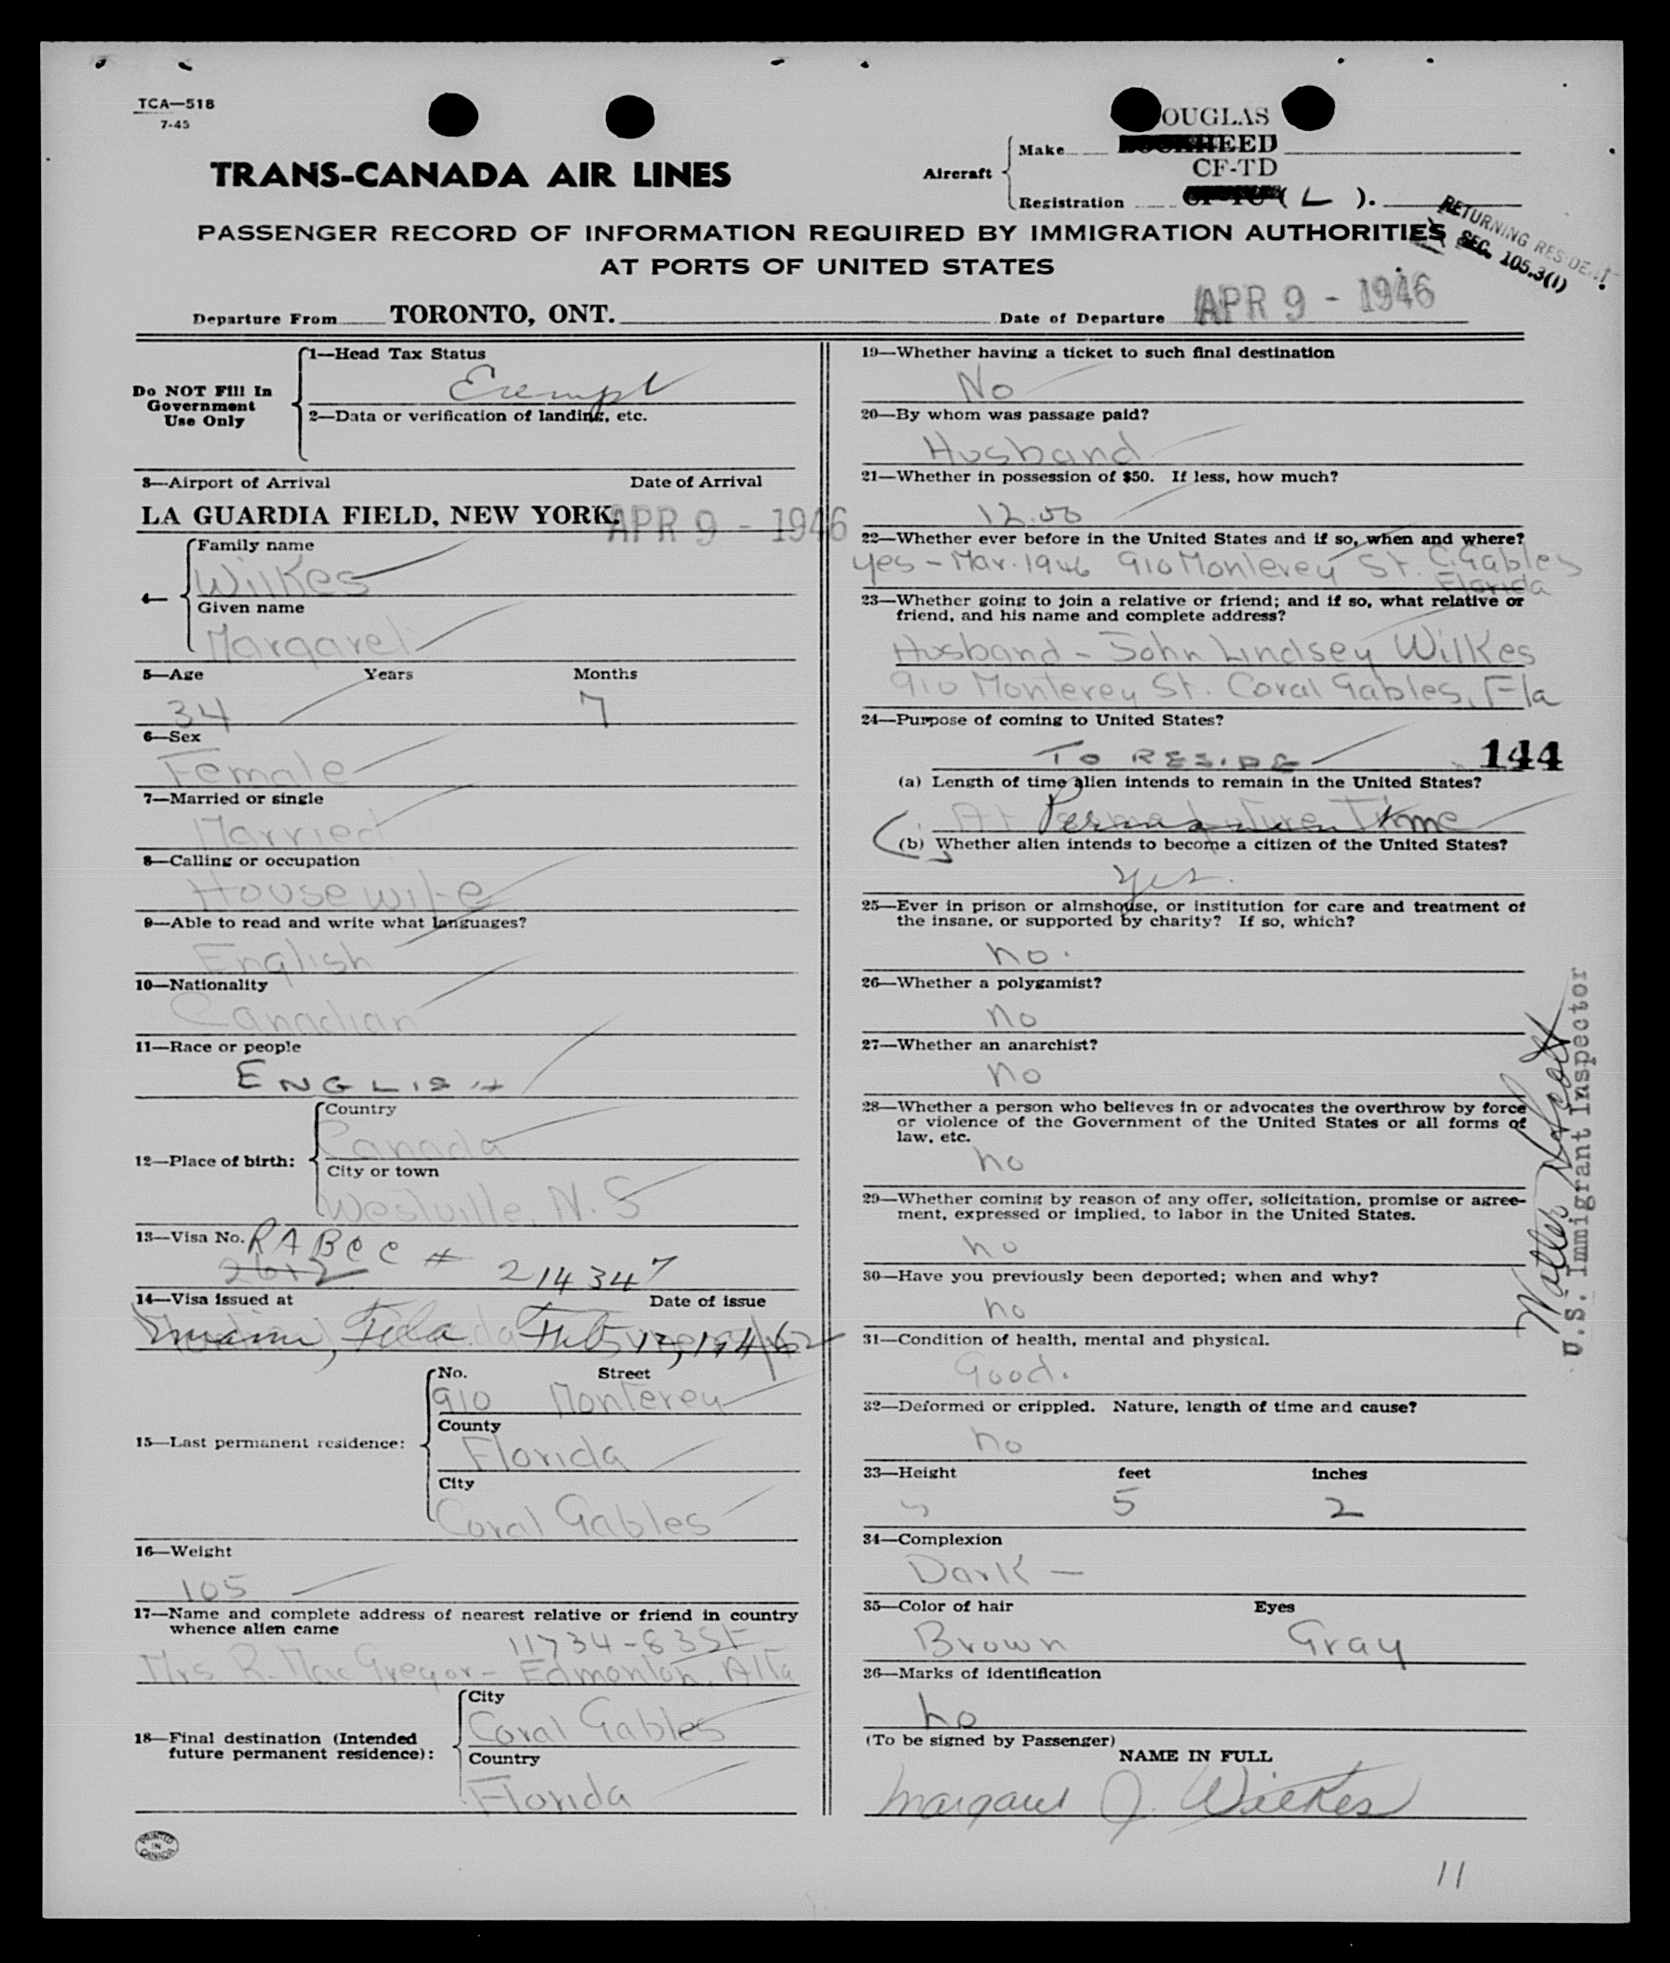 TCA—518
7-45
OUGLAS
Aircraft
Make
HEED
CF-TD
Registration
( L ).
TRANS-CANADA AIR LINES
RETURNING RESIDENT
SEC. 105.3(1)
PASSENGER RECORD OF INFORMATION REQUIRED BY IMMIGRATION AUTHORITIES
AT PORTS OF UNITED STATES
Departure From TORONTO, ONT.
Date of Departure APR 9 - 1946
Do NOT Fill In
Government
Use Only
1—Head Tax Status
Exempt
2—Data or verification of landing, etc.
3—Airport of Arrival Date of Arrival
LA GUARDIA FIELD, NEW YORK. APR 9 - 1946
4—
Family name
Wilkes
Given name
Margaret
5—Age Years Months
34 7
6—Sex
Female
7—Married or single
Married
8—Calling or occupation
Housewife
9—Able to read and write what languages?
English
10—Nationality
Canadian
11—Race or people
ENGLISH
12—Place of birth:
Country
Canada
City or town
Westville, N.S
13—Visa No. RABCC # 214347
2612
14—Visa issued at Date of issue
Miami, Fla. Feb 1946
15—Last permanent residence:
No. Street
910 Monterey
County
Florida
City
Coral Gables
16—Weight
105
17—Name and complete address of nearest relative or friend in country
whence alien came
11734-83 St
Mrs R. MacGregor - Edmonton, Alta
18—Final destination (Intended
future permanent residence):
City
Coral Gables
Country
Florida
PRINTED
IN
CANADA
19—Whether having a ticket to such final destination
No
20—By whom was passage paid?
Husband
21—Whether in possession of $50. If less, how much?
12.00
22—Whether ever before in the United States and if so, when and where?
yes - Mar. 1946 910 Monterey St. C. Gables
Florida
23—Whether going to join a relative or friend; and if so, what relative or
friend, and his name and complete address?
Husband - John Lindsey Wilkes
910 Monterey St. Coral Gables, Fla
24—Purpose of coming to United States?
TO RESIDE
144
(a) Length of time alien intends to remain in the United States?
Time
(b) Whether alien intends to become a citizen of the United States?
yes.
25—Ever in prison or almshouse, or institution for care and treatment of
the insane, or supported by charity? If so, which?
no.
26—Whether a polygamist?
no
27—Whether an anarchist?
no
28—Whether a person who believes in or advocates the overthrow by force
or violence of the Government of the United States or all forms of
law, etc.
no
29—Whether coming by reason of any offer, solicitation, promise or agree-
ment, expressed or implied, to labor in the United States.
no
30—Have you previously been deported; when and why?
no
31—Condition of health, mental and physical.
Good.
32—Deformed or crippled. Nature, length of time and cause?
no
33—Height feet inches
5 2
34—Complexion
Dark —
35—Color of hair Eyes
Brown Gray
36—Marks of identification
no
(To be signed by Passenger)
NAME IN FULL
Margaret J. Wilkes
Walter
U.S. Immigrant Inspector
11